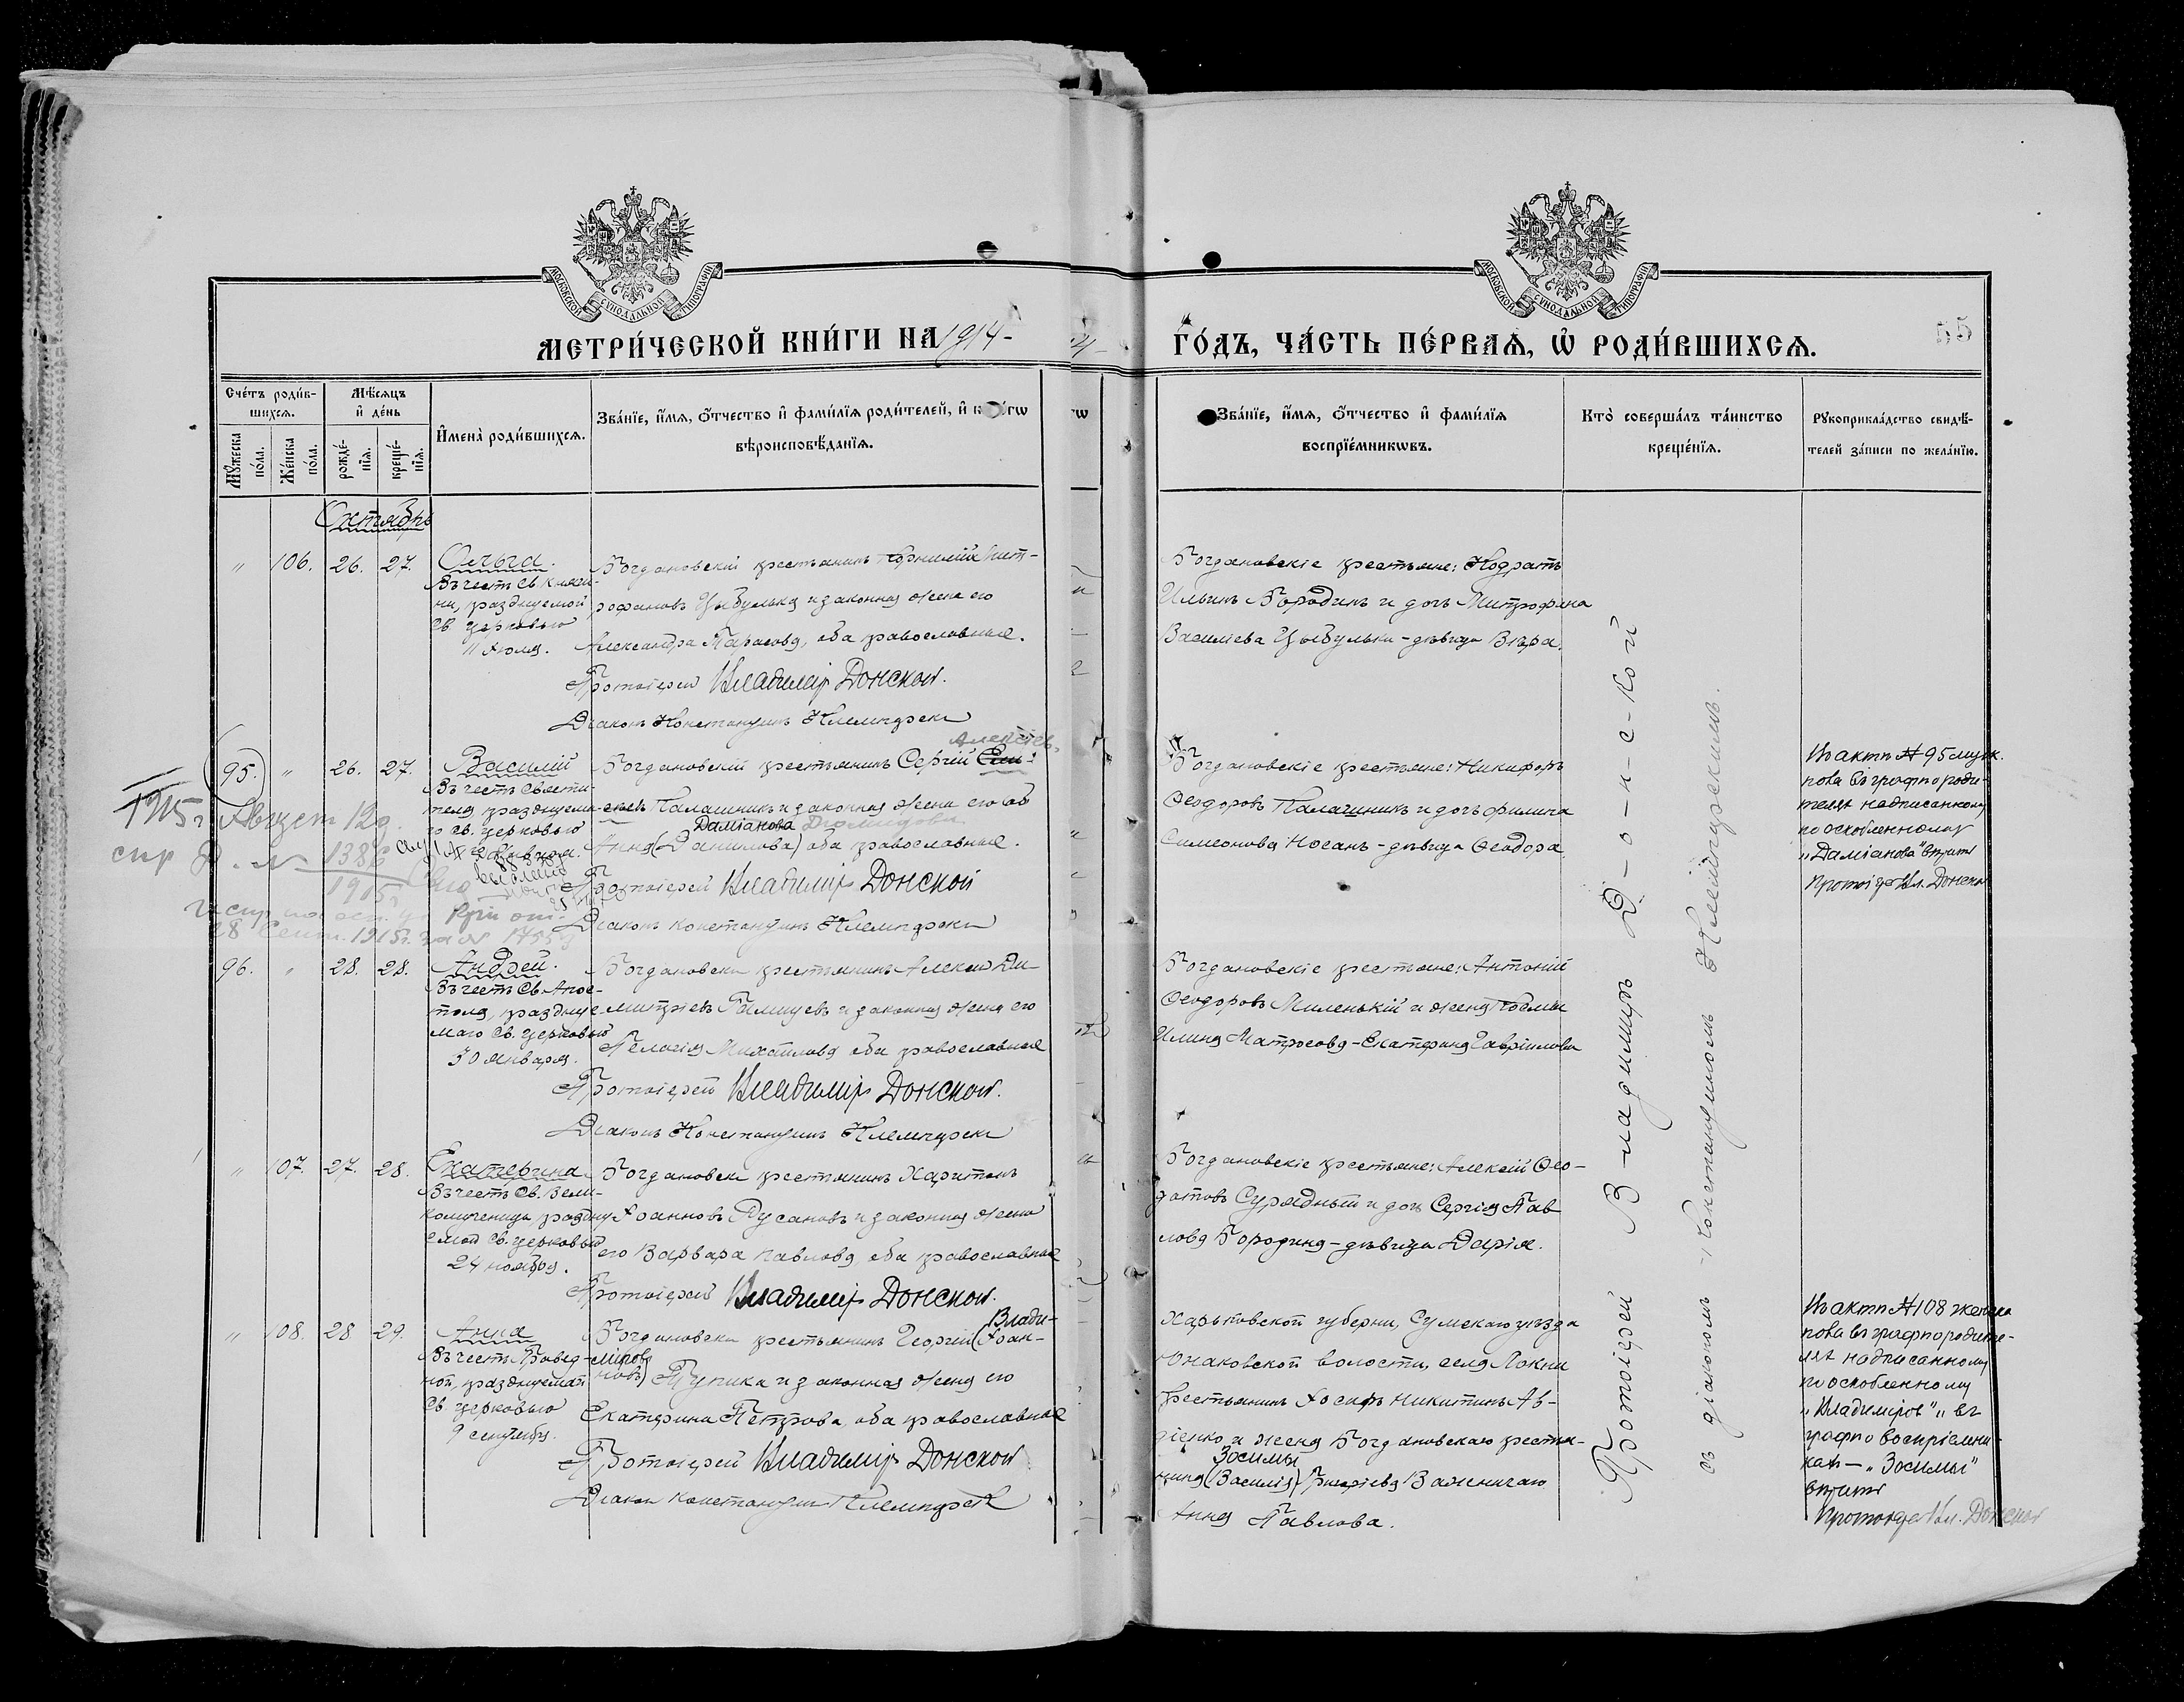 МОСКОВСКОЙ СУНОДАЛЬНОЙ ТИПОГРАФІИ
МОСКОВСКОЙ СУНОДАЛЬНОЙ ТИПОГРАФІИ
МЕТРИ́ЧЕСКОЙ КНИ́ГИ НА 1914-
ГО́ДЪ, ЧА́СТЬ ПЕ́РВАѦ, Ѡ РОДИ́ВШИХСѦ.
55
Сче́тъ роди́в-
шихсѧ.
Мꙋ́жеска по́ла.
Же́нска по́ла.
Мѣ́сѧцъ
и҆ де́нь
рожде́-
нїѧ.
креще́-
нїѧ.
И҆мена̀ роди́вшихсѧ.
Зва́нїе, и҆́мѧ, ѻ҆́тчество и҆ фами́лїѧ роди́телей, и҆ ко́гѡ
вѣроисповѣ́данїѧ.
Зва́нїе, и҆́мѧ, ѻ҆́тчество и҆ фами́лїѧ
воспрїе́мникѡвъ.
Кто̀ соверша́лъ та́инство
креще́нїѧ.
Рꙋкоприкла́дство свидѣ́-
телей за́писи по жела́нїю.
Октябрь
" 106. 26. 27. Ольга.
Въ честь Св. Княги-
ни, празднуемой
Св. церковью
11 Іюля.
Богдановскій крестьянинъ Корнилій Мит-
рофановъ Цыбулька и законная жена его
Александра Тарасова, оба православные.
Протоіерей Владиміръ Донской.
Діаконъ Константинъ
Богдановскіе крестьяне: Кодратъ
Ильинъ Бородинъ и дочь Митрофана
Василіева Цыбульки - дѣвица Вѣра.
95. " 26. 27. Василій
Въ честь Святи-
теля, празднуема-
го Св. церковью
Богдановскій крестьянинъ Сергій
Алексѣев.
Калашникъ и законная жена его
Даміанова
Анна (Данилова) оба православные.
Протоіерей Владиміръ Донской
Діаконъ Константинъ
1915 г. Август 12 д.
1386
1915
Богдановскіе крестьяне: Никифоръ
Ѳеодоровъ Калашникъ и дочь Филиппа
Симеонова Носань - дѣвица Ѳеодора
Въ актѣ № 95 мужск.
пола въ графѣ о роди-
теляхъ надписанному
по оскобленному
"Даміанова" вѣрить
Протоіер Вл. Донской
96. " 28. 28. Андрей.
Въ честь Св. Апос-
тола, праздную-
маго Св. церковью
30 января.
Богдановскій крестьянинъ Алексій Ди-
митріевъ и законная жена его
Пелагія Михайлова оба православные
Протоіерей Владиміръ Донской.
Діаконъ Константинъ
Богдановскіе крестьяне: Антоній
Ѳеодоровъ Миленькій и жена Космы
Ильина Матросова - Екатерина Гавріилова
" 107. 27. 28. Екатерина
Въ честь Св. Вели-
комученицы, празdну-
емой Св. церковью
24 ноября.
Богдановскій крестьянинъ Харитонъ
Іоанновъ Русановъ и законная жена
его Варвара Павлова, оба православные
Протоіерей Владиміръ Донской.
Богдановскіе крестьяне: Алексій Ѳео-
дотовъ и дочь Сергія Пав
лова Бородина - дѣвица Дарія.
" 108. 28 29. Анна
Въ честь Правед-
ной, празднуемой
Св. церковью
9 сентября.
Влади-
Богдановскій крестьянинъ Георгій (Іоан-
міровъ
новъ) Тупика и законная жена его
Екатерина Петрова, оба православные
Протоіерей Владиміръ Донской
Діаконъ Константинъ
Харьковской губерніи, Сумскаго уѣзда
Юнаковской волости, села Локни
крестьянинъ Іосифъ Никитинъ Ав-
діенко и жена Богдановскаго крестья-
Зосимы
нина (Василія) Григоріева Важничаго
Анна Павлова.
Въ актѣ № 108 женска
пола въ графѣ о родите-
ляхъ надписанному
по оскобленному
"Владиміровъ", въ
графѣ о воспріемни-
кахъ — "Зосимы"
вѣрить
Протоіерей Вл. Донской
Протоіерей Владиміръ Д-о-н-с-кой
съ діакономъ Константиномъ